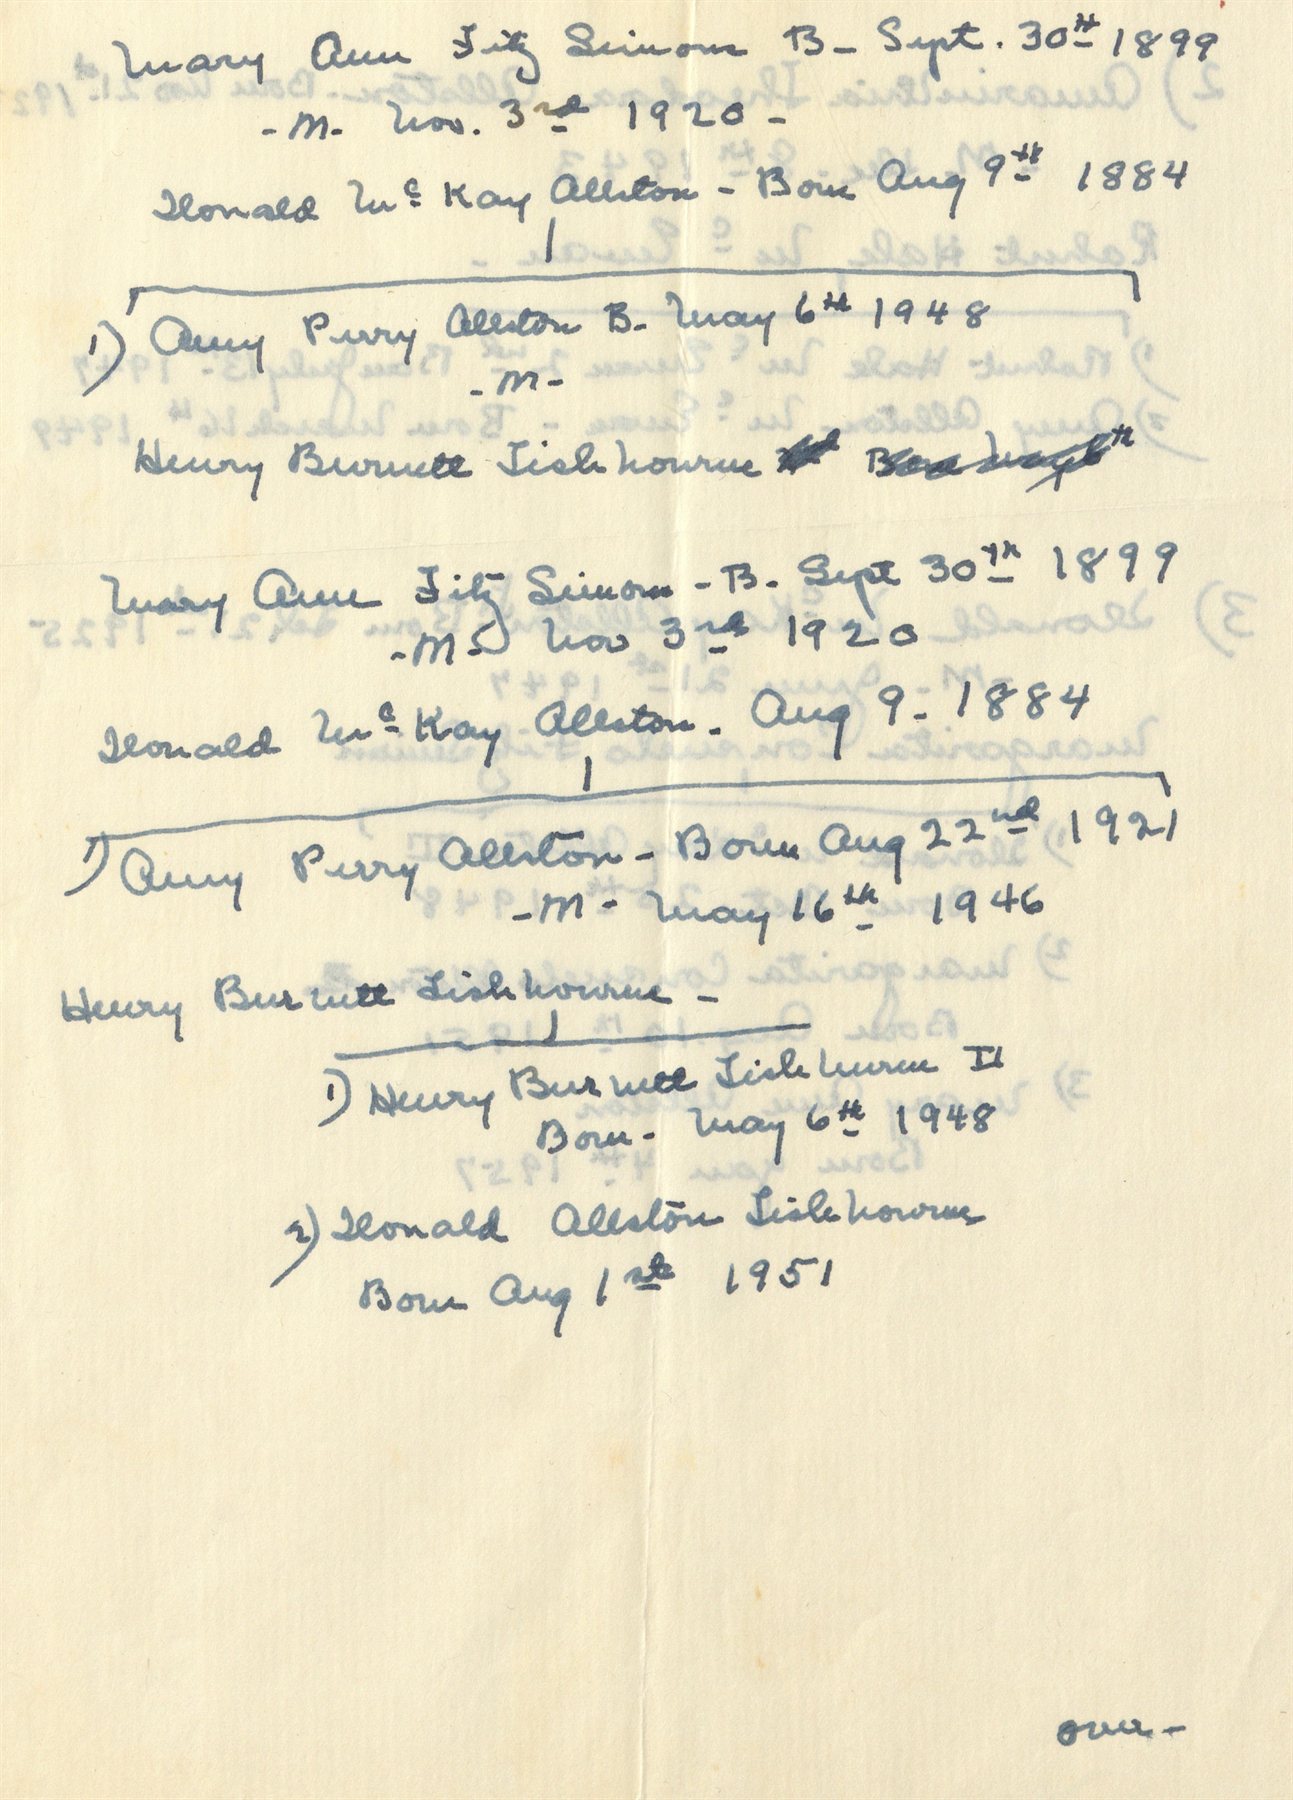 Mary Ann Fitz Simons B- Sept. 30th 1899
-M- Nov. 3rd 1920-
Donald McKay Allston - Born Aug 9th 1884
1) Amy Perry Allston B. May 6th 1948
-M-
Henry Burnett Fishbourne Born May 6th
Mary Ann Fitz Simons - B. Sept 30th 1899
-M- Nov 3rd 1920
Donald McKay Allston. Aug 9- 1884
1) Amy Perry Allston - Born Aug 22nd 1921
-M- May 16th 1946
Henry Burnett Fishbourne -
1) Henry Burnett Fishburne II
Born- May 6th 1948
2) Donald Allston Fishbourne
Born Aug 1st 1951
over-